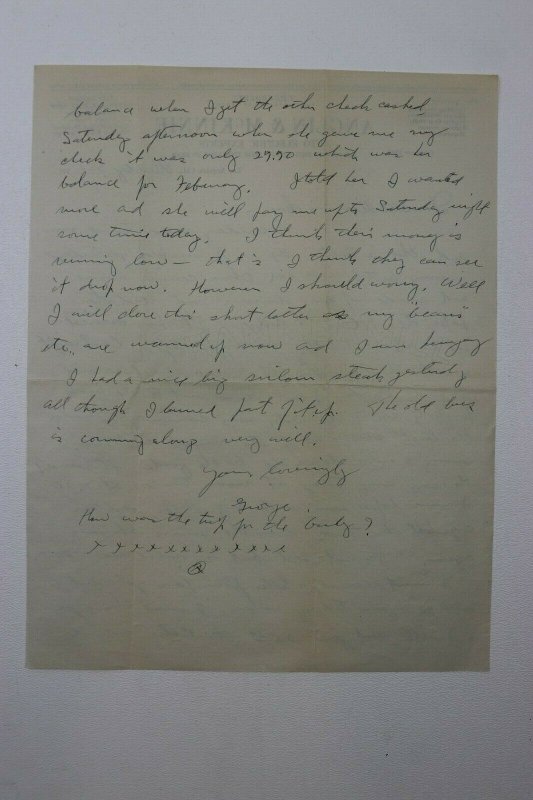 balance when I get the other check cashed
Saturday afternoon when she gave me my
check it was only 29.50 which was her
balance for February. I told her I wanted
more ad she will pay me upto Saturday night
some time today. I think their money is
running low — that is I think they can see
it drop now. However I should worry. Well
I will close this short letter as my "beans"
etc., are warmed up now and I am hungry
I had a nice big sirloin steak yesterday
all though I burned part of it up. The old
is comming along very well.
Yours lovingly
George
How was the trip for the baby?
x x x x x x x x x x x x x